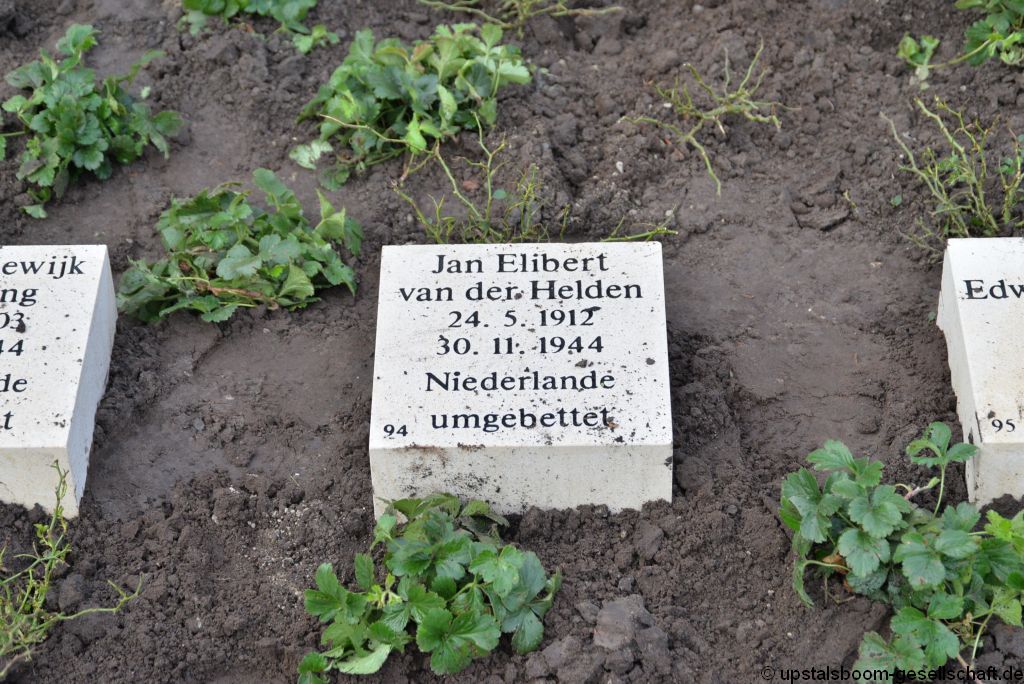 ewijk
ng
03
44
de
t
Jan Elibert
van der Helden
24. 5. 1912
30. 11. 1944
Niederlande
umgebettet
94
Edw
95
© upstalsboom-gesellschaft.de